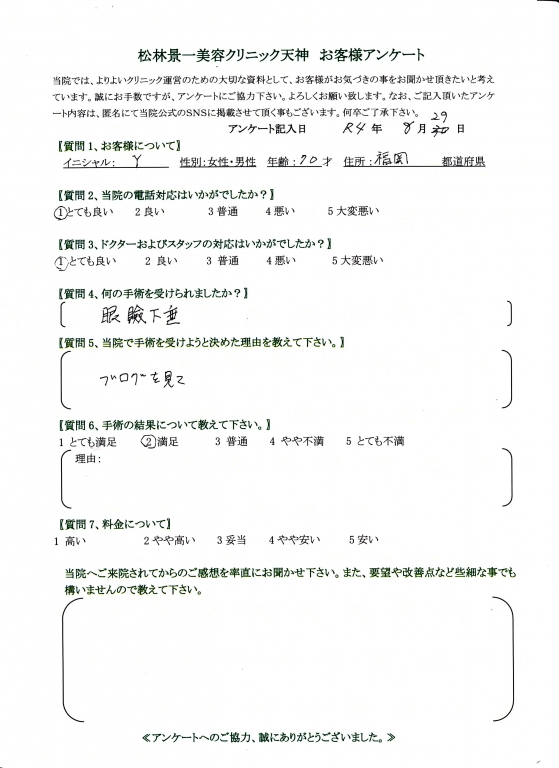 松林景一美容クリニック天神 お客様アンケート
当院では、よりよいクリニック運営のための大切な資料として、お客様がお気づきの事をお聞かせ頂きたいと考え
ています。誠にお手数ですが、アンケートにご協力下さい。よろしくお願い致します。なお、ご記入頂いたアンケ
ート内容は、匿名にて当院公式のSNSに掲載させて頂く事もございます。何卒ご了承下さい。
29
アンケート記入日 R4 年 8 月 30 日
【質問 1、お客様について】
イニシャル: Y 性別:女性・男性 年齢:70 才 住所:福岡 都道府県
【質問 2、当院の電話対応はいかがでしたか?】
1とても良い 2 良い 3 普通 4 悪い 5 大変悪い
【質問 3、ドクターおよびスタッフの対応はいかがでしたか?】
1とても良い 2 良い 3 普通 4 悪い 5 大変悪い
【質問 4、何の手術を受けられましたか?】
眼瞼下垂
【質問 5、当院で手術を受けようと決めた理由を教えて下さい。】
ブログを見て
【質問 6、手術の結果について教えて下さい。】
1 とても満足 2満足 3 普通 4 やや不満 5 とても不満
理由:
【質問 7、料金について】
1 高い 2 やや高い 3 妥当 4 やや安い 5 安い
当院へご来院されてからのご感想を率直にお聞かせ下さい。また、要望や改善点など些細な事でも
構いませんので教えて下さい。
≪アンケートへのご協力、誠にありがとうございました。≫